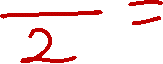 ― =
2